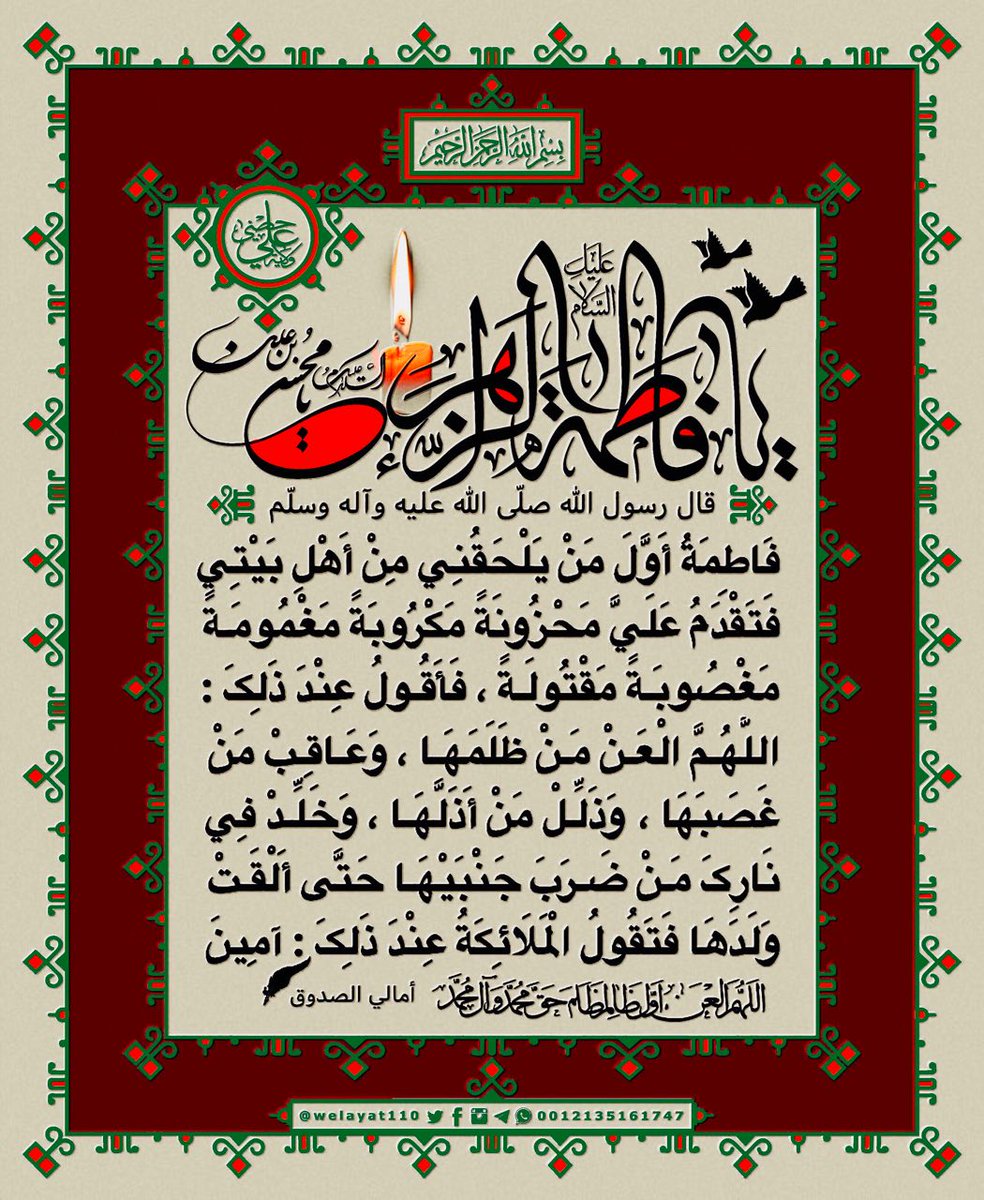 بِسْمِ اللهِ الرَّحْمنِ الرَّحيمِ
ولاية علي حصني
يا فاطمة الزهراء
عليك السلام
محسن بن علي
قال رسول الله صلّى الله عليه وآله وسلّم
فَاطِمَةُ أَوَّلَ مَنْ يَلْحَقُنِي مِنْ أَهْلِ بَيْتِي
فَتَقْدَمُ عَلَيَّ مَحْزُونَةً مَكْرُوبَةً مَغْمُومَةً
مَغْصُوبَةً مَقْتُولَةً ، فَأَقُولُ عِنْدَ ذَلِکَ :
اللَّهُمَّ الْعَنْ مَنْ ظَلَمَهَا ، وَعَاقِبْ مَنْ
غَصَبَهَا ، وَذَلِّلْ مَنْ أَذَلَّهَا ، وَخَلِّدْ فِي
نَارِکَ مَنْ ضَرَبَ جَنْبَيْهَا حَتَّى أَلْقَتْ
وَلَدَهَا فَتَقُولُ الْمَلَائِكَةُ عِنْدَ ذَلِکَ : آمِينَ
اللّهم العن أول ظالم ظلم حق محمد وآل محمد
أمالي الصدوق
@welayat110 0012135161747